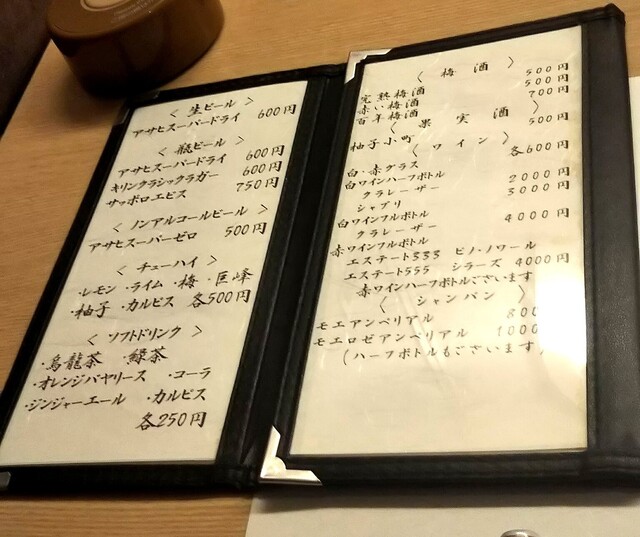 〈 生ビール 〉
アサヒスーパードライ 600円
〈 瓶ビール 〉
アサヒスーパードライ 600円
キリンクラシックラガー 600円
サッポロエビス 750円
〈 ノンアルコールビール 〉
アサヒスーパーゼロ 500円
〈 チューハイ 〉
・レモン ・ライム ・梅 ・巨峰
・柚子 ・カルピス 各500円
〈 ソフトドリンク 〉
・烏龍茶 ・緑茶
・オレンジバヤリース ・コーラ
・ジンジャーエール ・カルピス
各250円
〈 梅酒 〉
完熟梅酒 500円
赤い梅酒 500円
百年梅酒 700円
〈 果実酒 〉
柚子小町 500円
〈 ワイン 〉
白・赤グラス 各600円
白ワインハーフボトル
クラレーザー 2000円
シャブリ 3000円
白ワインフルボトル
クラレーザー 4000円
赤ワインフルボトル
エステート333 ピノ・ノワール
エステート555 シラーズ 4000円
赤ワインハーフボトルございます
〈 シャンパン 〉
モエアンペリアル
モエロゼアンペリアル
(ハーフボトルもございます)